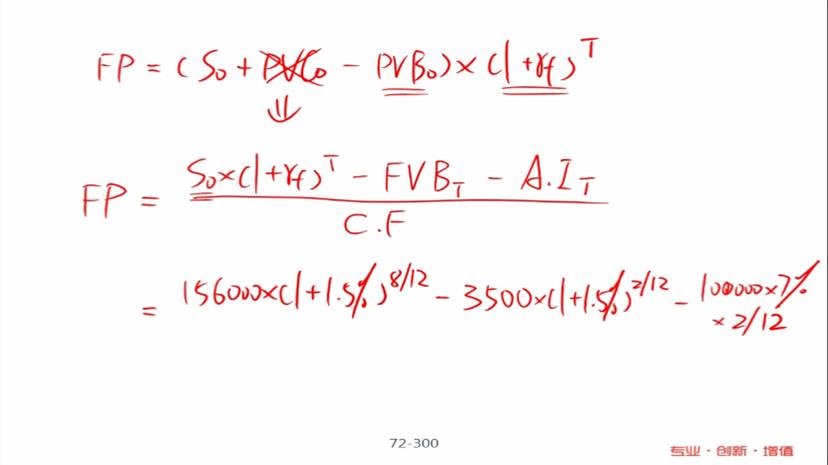 FP = (S₀ + PVC₀ - PVB₀) × (1+rf)ᵀ
⇓
FP = 
S₀×(1+rf)ᵀ - FVB_T - A.I_T
C.F
= 156000×(1+1.5%)^8/12 - 3500×(1+1.5%)^2/12 - 100000×7%
× 2/12
72-300
专业·创新·增值